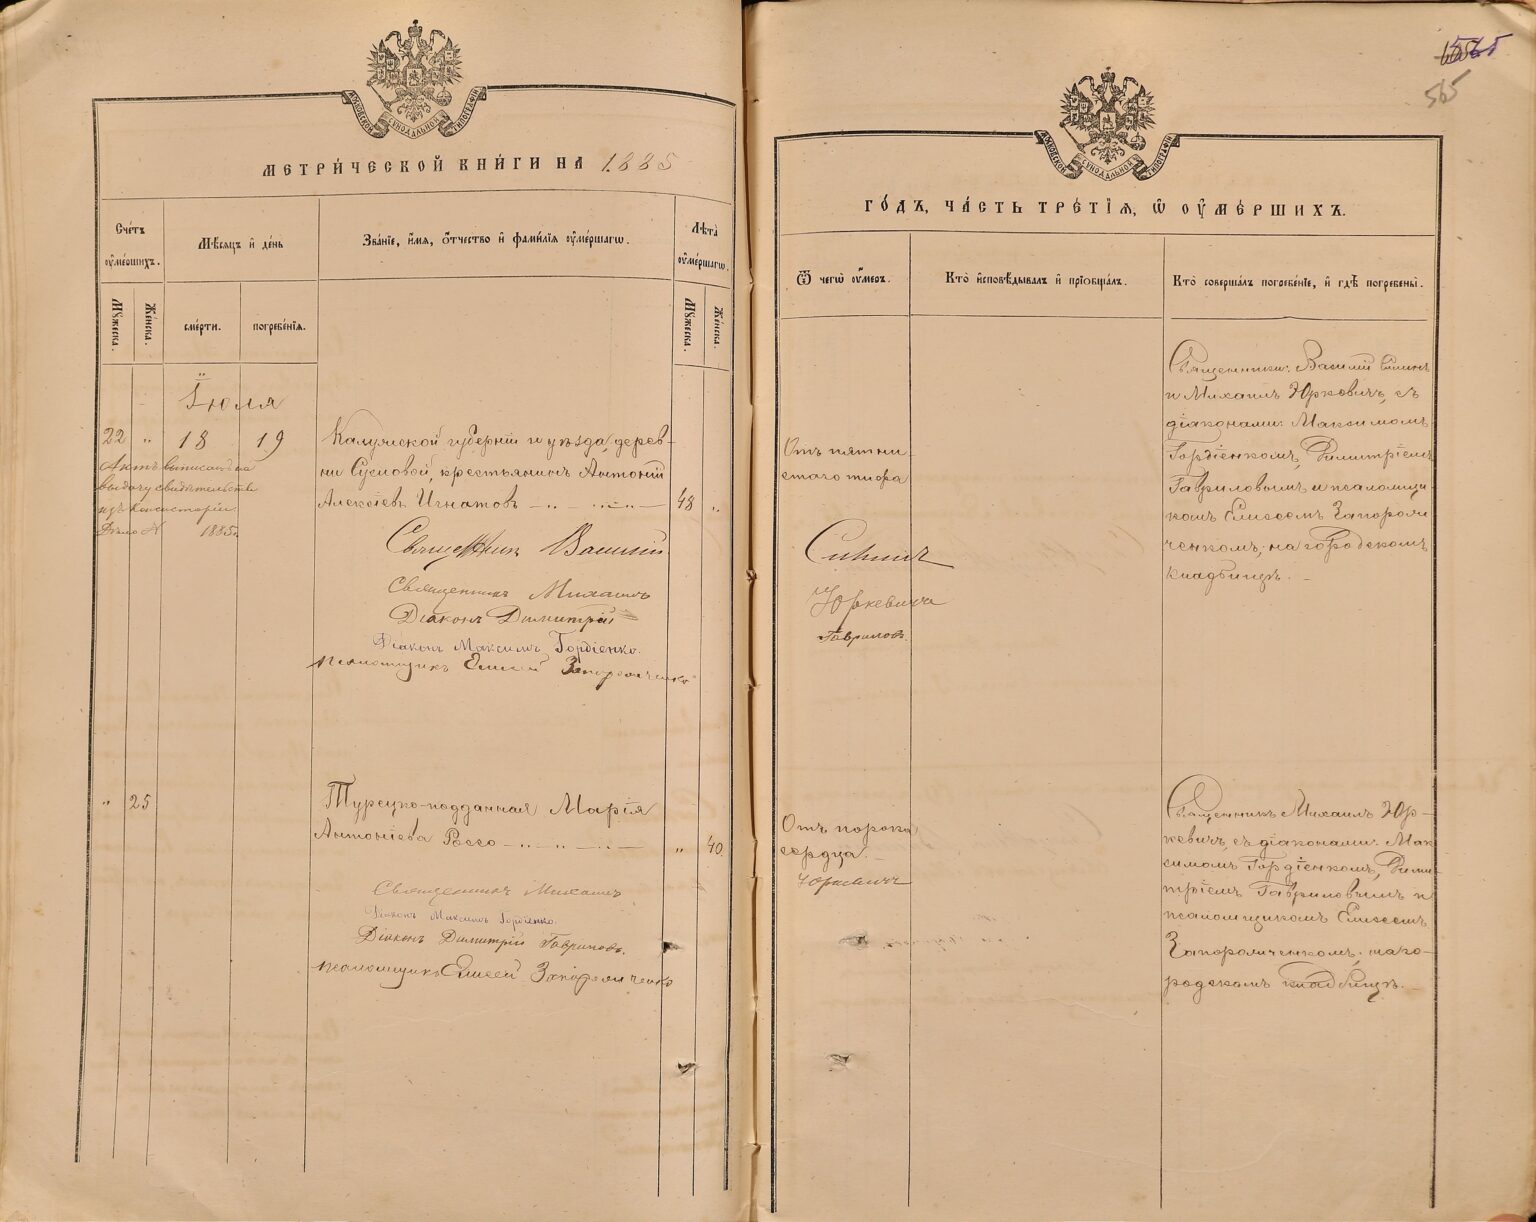 МОСКОВСКОЙ СѴНОДАЛЬНОЙ ТИПОГРАФІИ
МЕТРИ́ЧЕСКОЙ КНИ́ГИ НА 1885
Сче́тъ ᲂу҆ме́ршихъ.
Мѣ́сяцъ и҆ де́нь
Зва́нїе, и҆́мя, ѻ҆́тчество и҆ фами́лїя ᲂу҆ме́ршагѡ.
Лѣ́та ᲂу҆ме́ршагѡ.
Мꙋ́жеска.
Же́нска.
сме́рти.
погребе́нїя.
Мꙋ́жеска.
Же́нска.
Іюля
22 " 18 19
Калужской губерніи и уѣзда, дерев-
ни Сусловой, крестьянинъ Антоній
Алексіевъ Игнатовъ 48 "
Актъ выписанъ на
выдачу свидѣтельства
изъ Консисторіи
Дѣло № 1885г.
Священникъ Василій
Священникъ Михаилъ
Діаконъ Димитрій
Діаконъ Максимъ Гордіенко.
псаломщикъ Елисей Запорожченко
" 25
Турецко-подданная Марія
Антоніева Россо " 40.
Священникъ Михаилъ
Діаконъ Максимъ Гордіенко.
Діаконъ Димитрій Гавриловъ.
псаломщикъ Елисей Запорожченко
565
МОСКОВСКОЙ СѴНОДАЛЬНОЙ ТИПОГРАФІИ
ГО́ДЪ, ЧА́СТЬ ТРЕ́ТЇЯ, Ѡ҆ ОУ҆МЕ́РШИХЪ.
Ѿ чегѡ̀ ᲂу҆́меръ.
Кто̀ и҆сповѣ́дывалъ и҆ прїѻбща́лъ.
Кто̀ соверша́лъ погребе́нїе, и҆ гдѣ̀ погребены̀.
Отъ пятни
стаго тифа
Юркевичъ
Гавриловъ.
Священники: Василій
и Михаилъ Юркевичъ, съ
діаконами: Максимомъ
Гордіенкомъ, Димитріемъ
Гавриловымъ и псаломщи-
комъ Елисеемъ Запорож-
ченкомъ; на городскомъ
кладбищѣ.
Отъ порока
сердца.
Юркевичъ
Священникъ Михаилъ Юр-
кевичъ, съ діаконами: Мак-
симомъ Гордіенкомъ, Дими-
тріемъ Гавриловымъ и
псаломщикомъ Елисеемъ
Запорожченкомъ; на го-
родскомъ кладбищѣ.